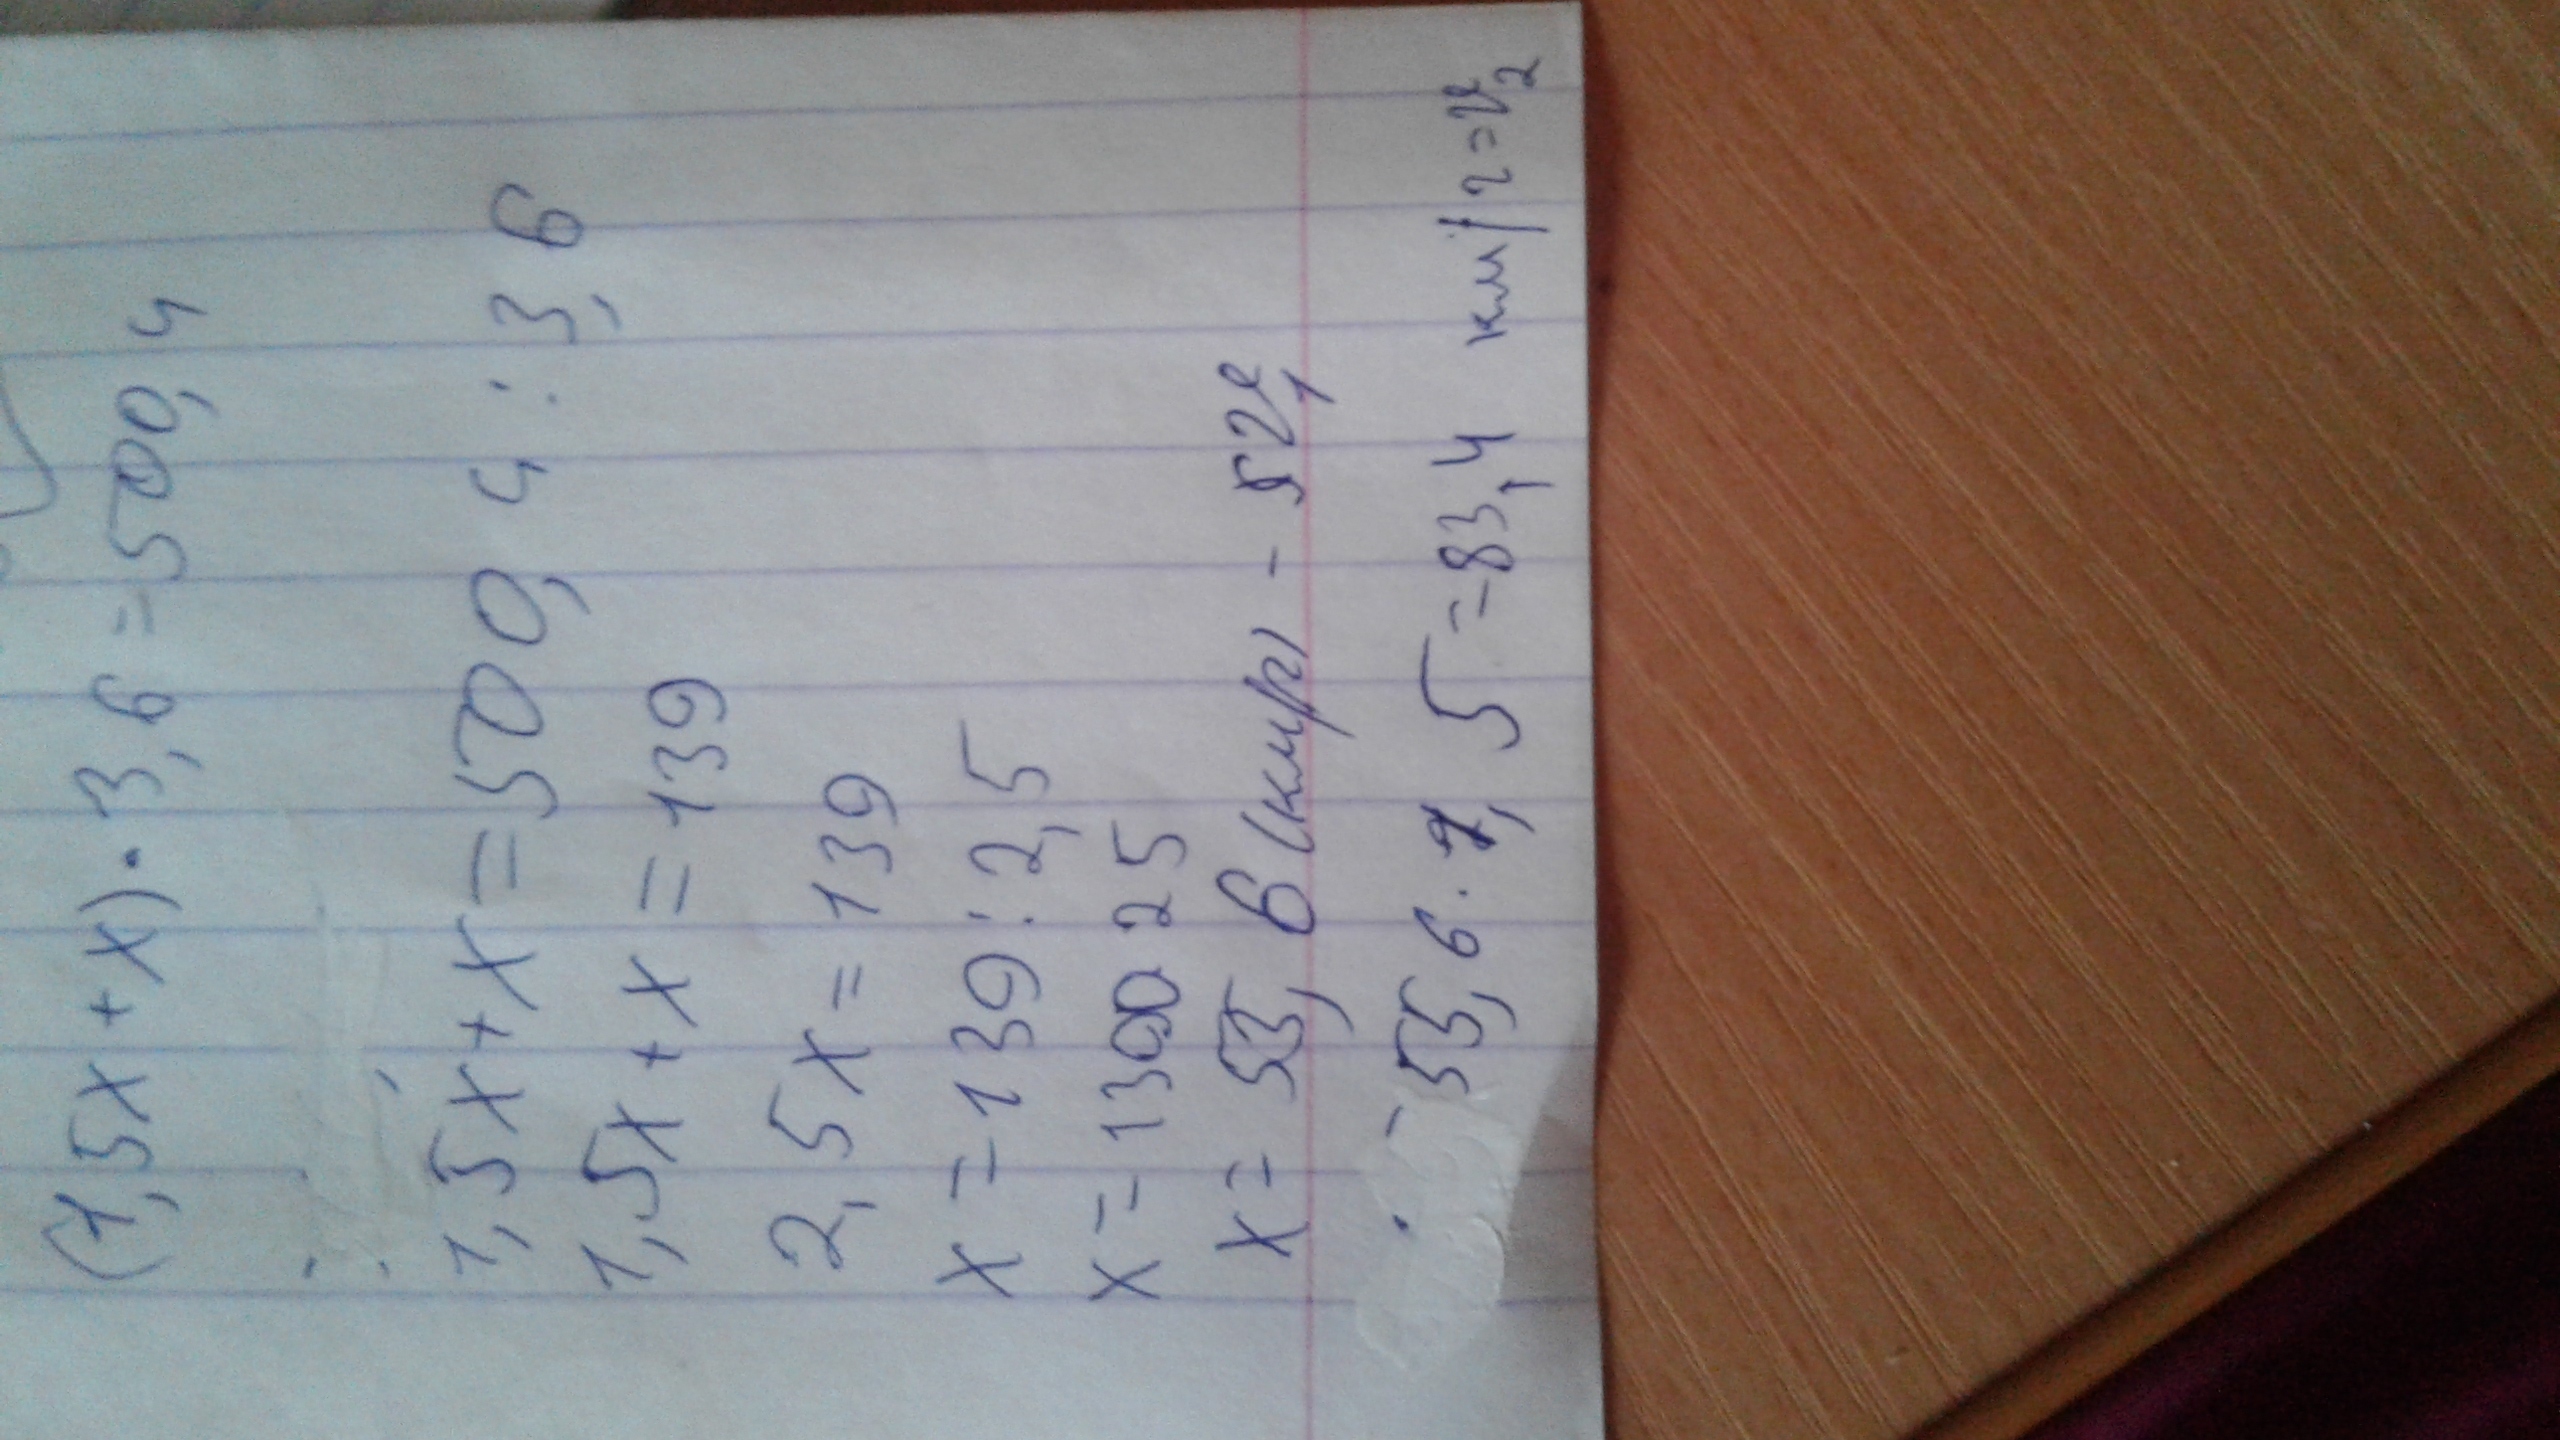 (1,5x+x)·3,6=500,4
1,5x+x=500,4:3,6
1,5x+x=139
2,5x=139
x=139:2,5
x=1390 25
x=55,6(км/г) -
55,6·1,5=83,4 км/г=V2